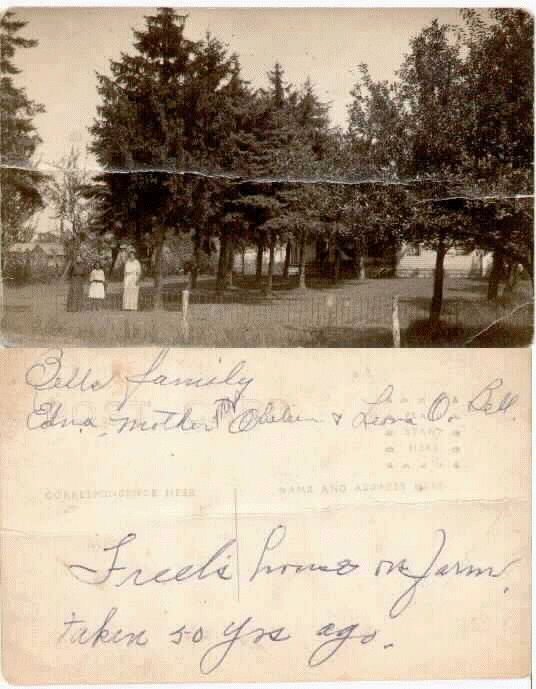 Bells family
Edna, Mother & Leona O. Bell.
POST CARD
PLACE
STAMP
HERE
CORRESPONDENCE HERE
NAME AND ADDRESS HERE
Freel's house on farm,
taken 50 yrs ago.